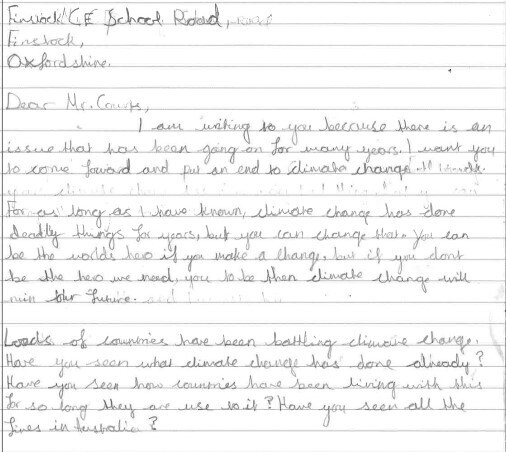 Finstock C.E School Road,
Finstock,
Oxfordshire.
Dear Mr. Courts,
I am writing to you because there is an
issue that has been going on for many years. I want you
to come foward and put an end to climate change
For as long as I have known, climate change has done
deadly things for years, but you can change that. You can
be the worlds hero if you make a change, but if you dont
be the hero we need, you to be then climate change will
ruin our future.
Loads of countries have been battling climate change.
Have you seen what climate change has done already?
Have you seen how countries have been living with this
for so long they are use to it? Have you seen all the
fires in Australia?